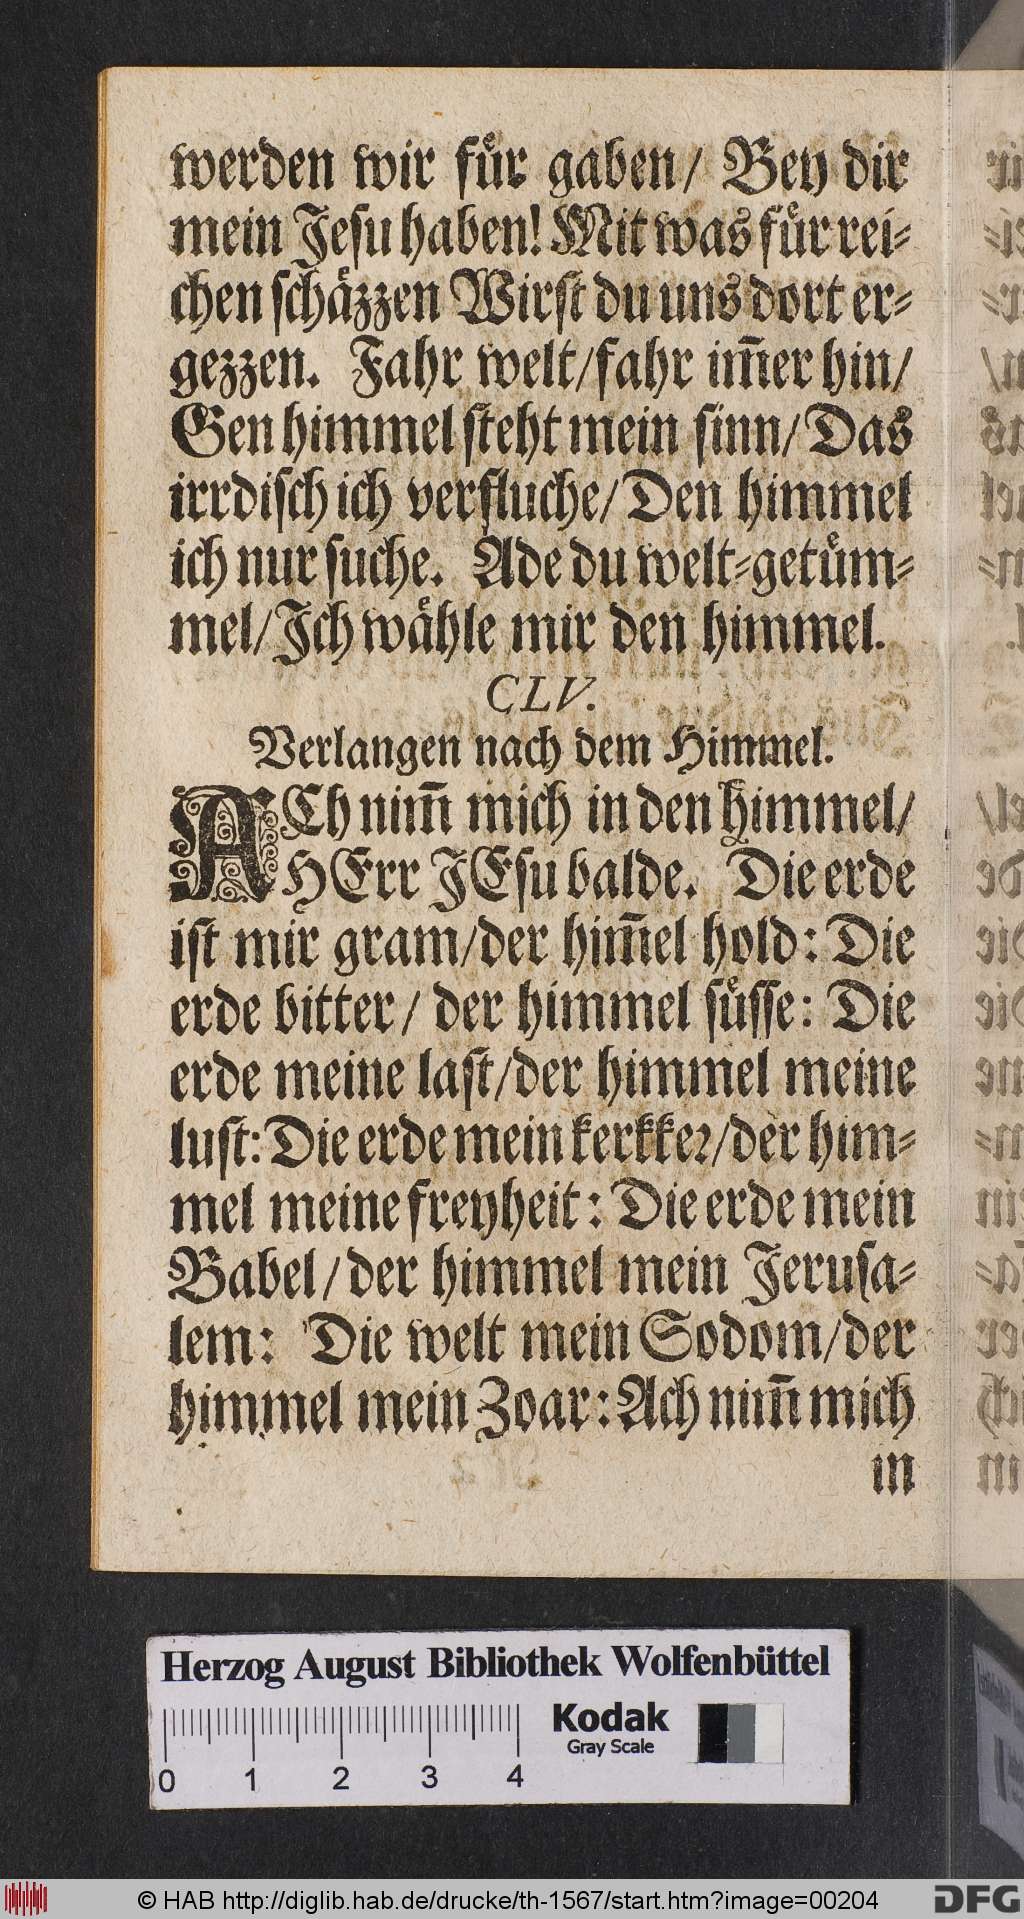 werden wir fuͤr gaben/ Bey dir
mein Jesu haben! Mit was fuͤr rei⸗
chen schaͤzzen Wirst du uns dort er⸗
gezzen. Fahr welt/fahr im̃er hin/
Gen himmel steht mein sinn/ Das
irrdisch ich verfluche/ Den himmel
ich nur suche. Ade du welt⸗getuͤm⸗
mel/ Ich waͤhle mir den himmel.
CLV.
Verlangen nach dem Himmel.
ACh nim̃ mich in den himmel/
HErr JEsu balde. Die erde
ist mir gram/der him̃el hold: Die
erde bitter/ der himmel suͤsse: Die
erde meine last/der himmel meine
lust: Die erde mein kerkker/der him⸗
mel meine freyheit: Die erde mein
Babel/der himmel mein Jerusa⸗
lem: Die welt mein Sodom/der
himmel mein Zoar: Ach nim̃ mich
in
Herzog August Bibliothek Wolfenbüttel
Kodak
Gray Scale
0 1 2 3 4
© HAB http://diglib.hab.de/drucke/th-1567/start.htm?image=00204
DFG